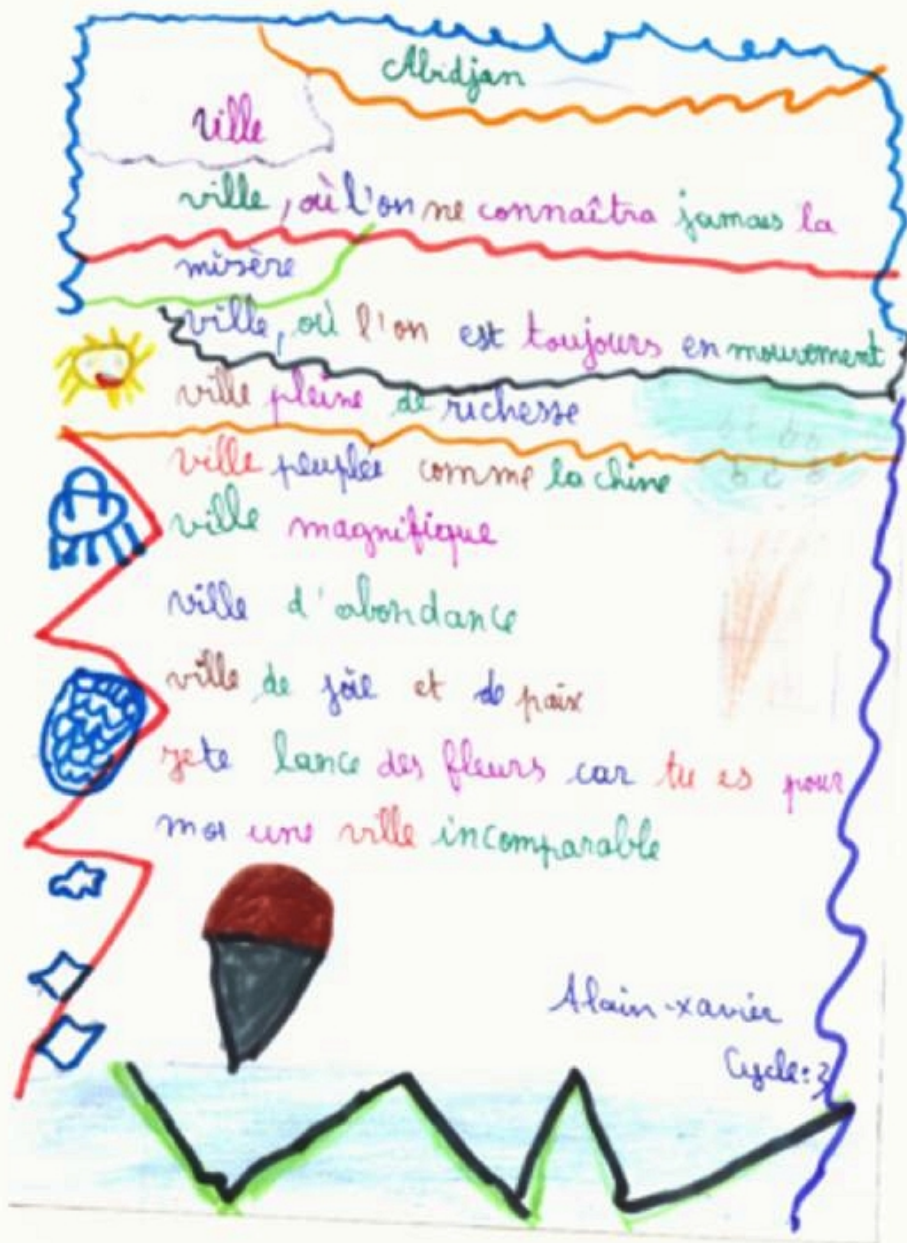 Abidjan
Ville
ville, où l'on ne connaîtra jamais la
misère
ville, où l'on est toujours en mouvement
ville pleine de richesse
ville peuplée comme la chine
ville magnifique
ville d'abondance
ville de joie et de paix
je te lance des fleurs car tu es pour
moi une ville incomparable
Alain-xavier
Cycle: 3